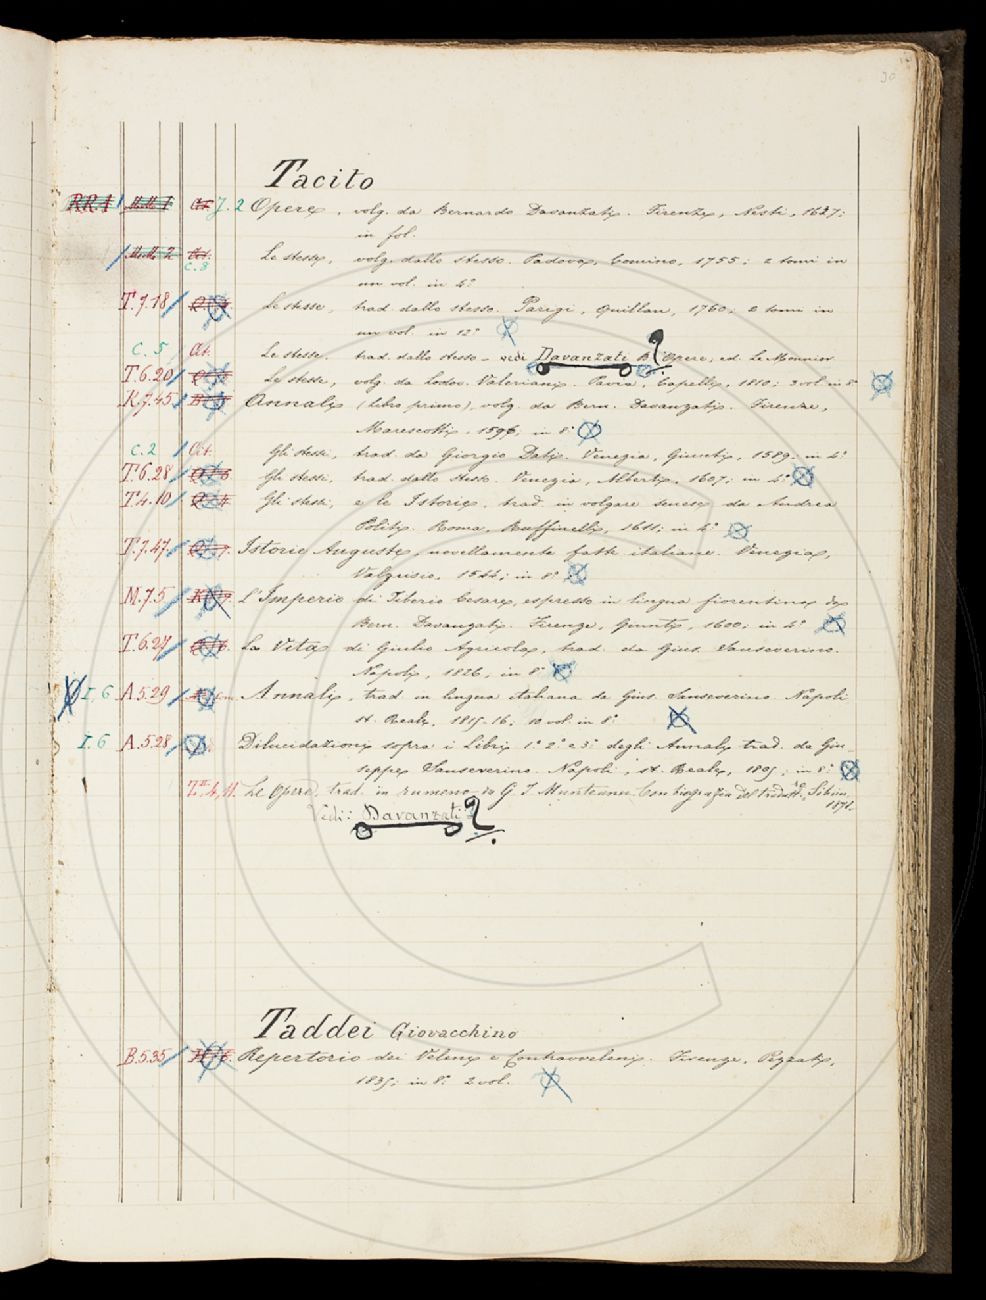 30
Tacito
RR1 M.M.1 J.2 Opere, volg. da Bernardo Davanzati. Firenze, Nesti, 1637;
in fol.
M.M.2 C.3 Le stesse, volg. dallo stesso. Padova, Comino, 1755; 2 tomi in
un vol. in 4°
T.7.18 Le stesse, trad. dallo stesso. Parigi, Quillau, 1760; 2 tomi in
un vol. in 12°
C.5 Cit. Le stesse, trad. dallo stesso – vedi Davanzati B. Opere, ed. Le Monnier
T.6.20 Le stesse, volg. da Lodov. Valeriani. Pavia, Capelli, 1810; 2 vol. in 8°
K.7.45 Annali (libro primo), volg. da Bern. Davanzati. Firenze,
Marescotti, 1596; in 8°
C.2 Cit. Gli stessi, trad. da Giorgio Dati. Venezia, Giunti, 1589; in 4°
T.6.28 Gli stessi, trad. dallo stesso. Venezia, Alberti, 1607; in 4°
T.4.10 Gli stessi, e le Istorie, trad. in volgare senese da Andrea
Politi. Roma, Ruffinelli, 1611; in 4°
T.7.47 Istorie Auguste, novellamente fatte italiane. Venezia,
Valgrisio, 1544; in 8°
M.7.5 L'Imperio di Tiberio Cesare, espresso in lingua fiorentina da
Bern. Davanzati. Firenze, Giunti, 1600; in 4°
T.6.27 La Vita di Giulio Agricola, trad. da Gius. Sanseverino.
Napoli, 1826, in 8°
I.6 A.5.29 Annali, trad. in lingua italiana da Gius. Sanseverino. Napoli
st. Reale, 1815-16; 10 vol. in 8°
I.6 A.5.28 Dilucidazioni sopra i Libri 1° 2° e 3° degli Annali trad. da Giu-
seppe Sanseverino. Napoli, st. Reale, 1805; in 8°
Le Opere, trad. in rumeno da G. I. Munteanu. Con biografia del tradutt.re Sibiu
1871.
Vedi: Davanzati
Taddei Giovacchino
B.5.35 Repertorio dei Veleni e Contravveleni. Firenze, Pezzati,
1835; in 8° 2 vol.